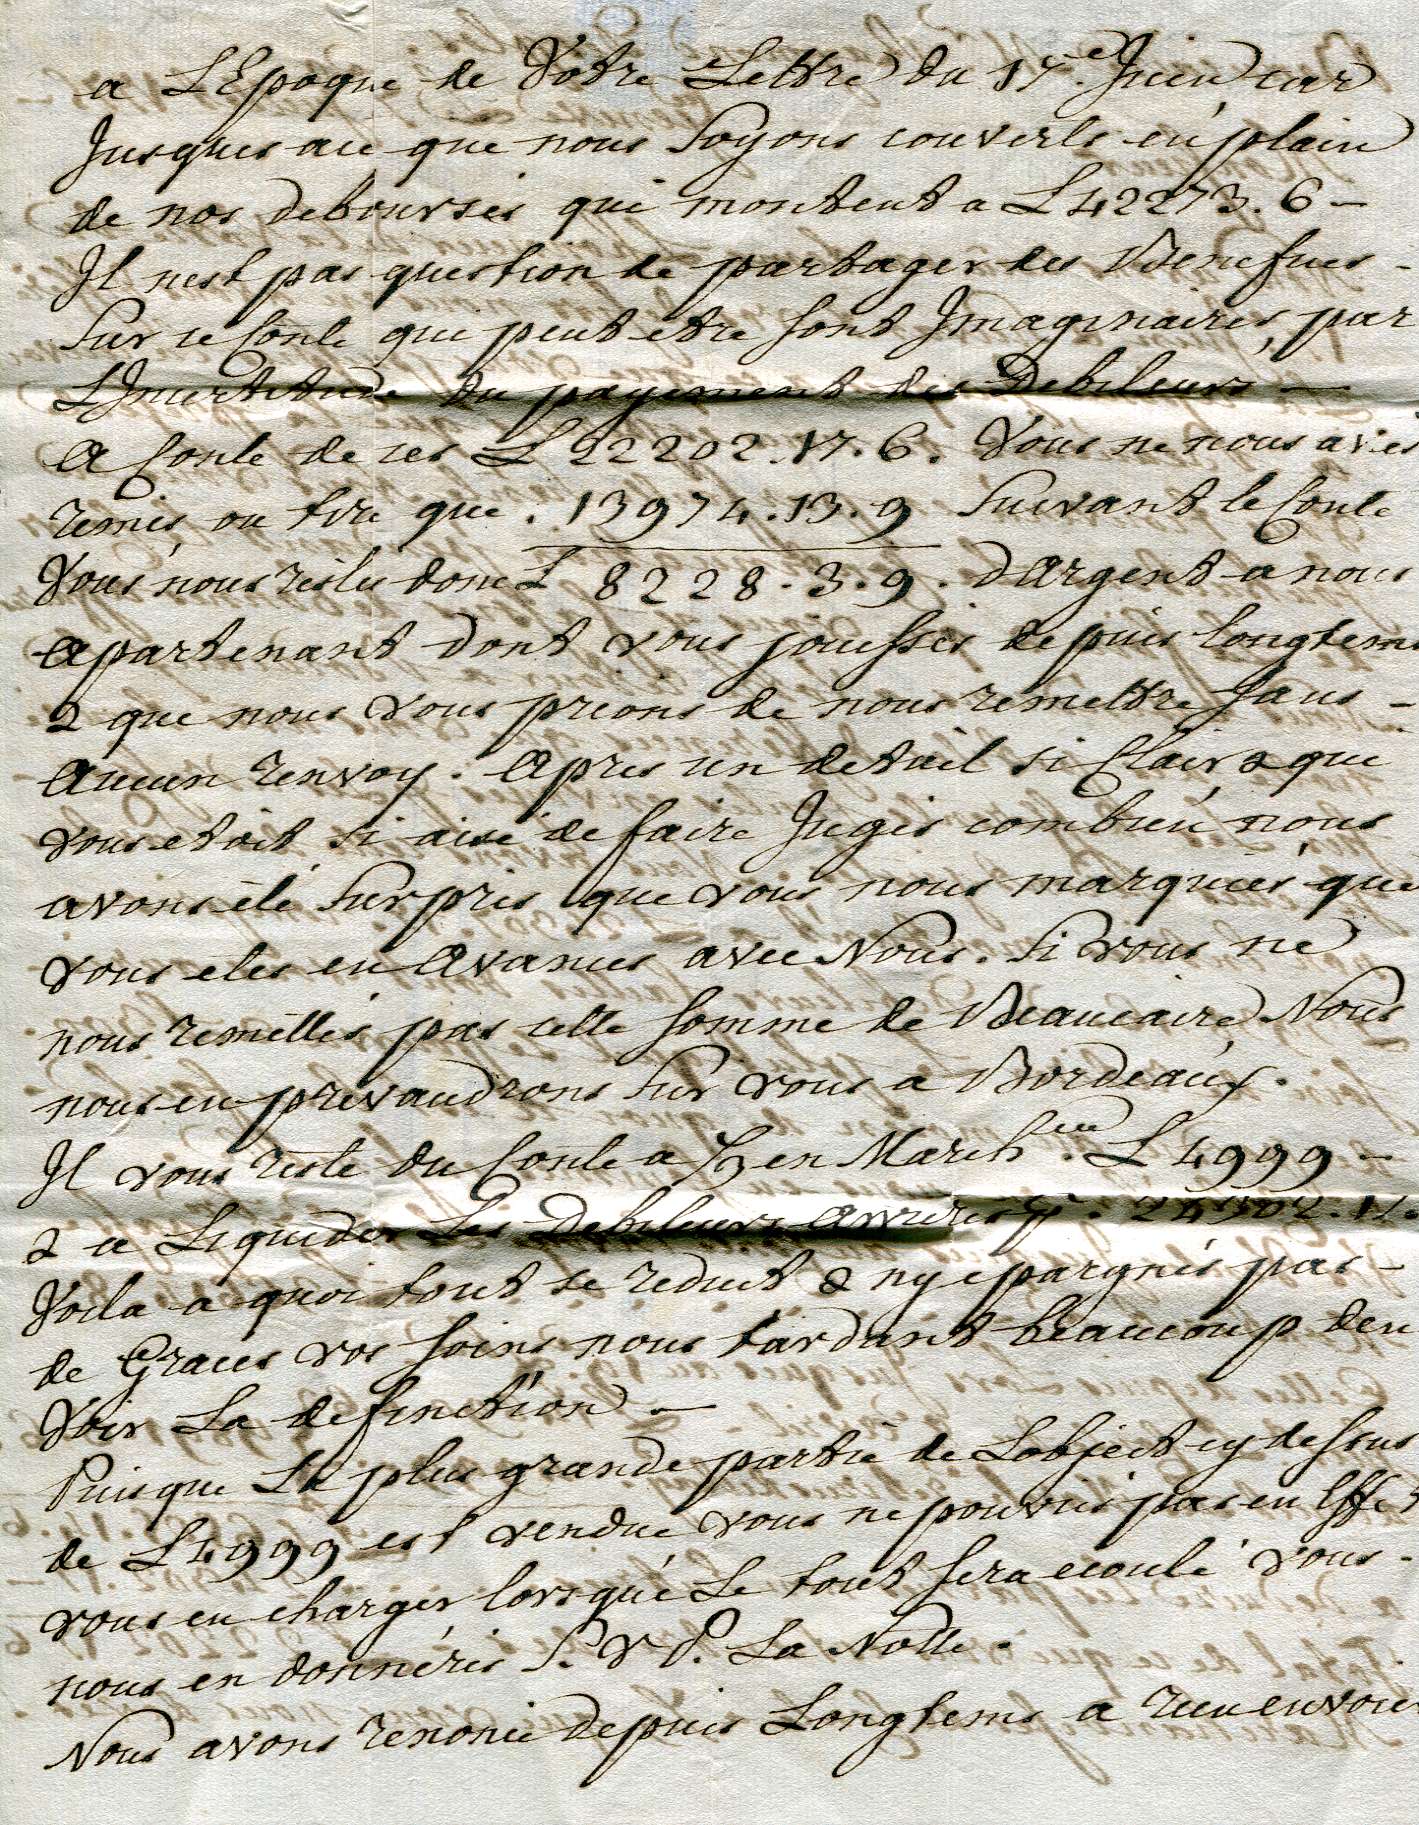 a LEpoque de Votre Lettre du 17.e Juin car
Jusques a ce que nous Soyons couverts en plain
de nos deboursés qui montent a L 42273. 6 –
Il nest pas question de partager des Benefices -
Sur ce Conte qui peut etre sont Imaginaires, par
LIncertitude du payement des Debiteurs –
A Conte de ces L 22202. 17. 6. Vous ne nous avés
remis ou tiré que . 13974. 13. 9 Suivant le Conte
Vous nous restes donc L 8228. 3. 9. dArgent a nous
Apartenant dont vous jouissés depuis longtems
& que nous vous prions de nous remettre sans -
Aucun renvoy. Apres un detail si Clair & que
vous etoit si aisé de faire Jugés combien nous
avons été Surpris que vous nous marquiés que
vous etes en Avances avec Nous. Si vous ne
nous remettés pas cette somme de Beaucaire Nous
nous en prevaudrons Sur vous a Bordeaux.
Il vous reste du Conte a en March.ses L 4999 –
& a Liquider Les Debiteurs Arrierés p.
Voila a quoi tout se reduit & ny epargnés pas -
de Graces vos soins nous tardant beaucoup den
Voir La definition –
Puisque La plus grande partie de Lobject cy dessus
de L 4999 est vendue vous ne pouvés pas en Effet
vous en charger lorsque Le tout sera ecoulé vous -
nous en donnerés S. V. P. La Notte.
Nous avons renoncé depuis Longtems a rien envoier